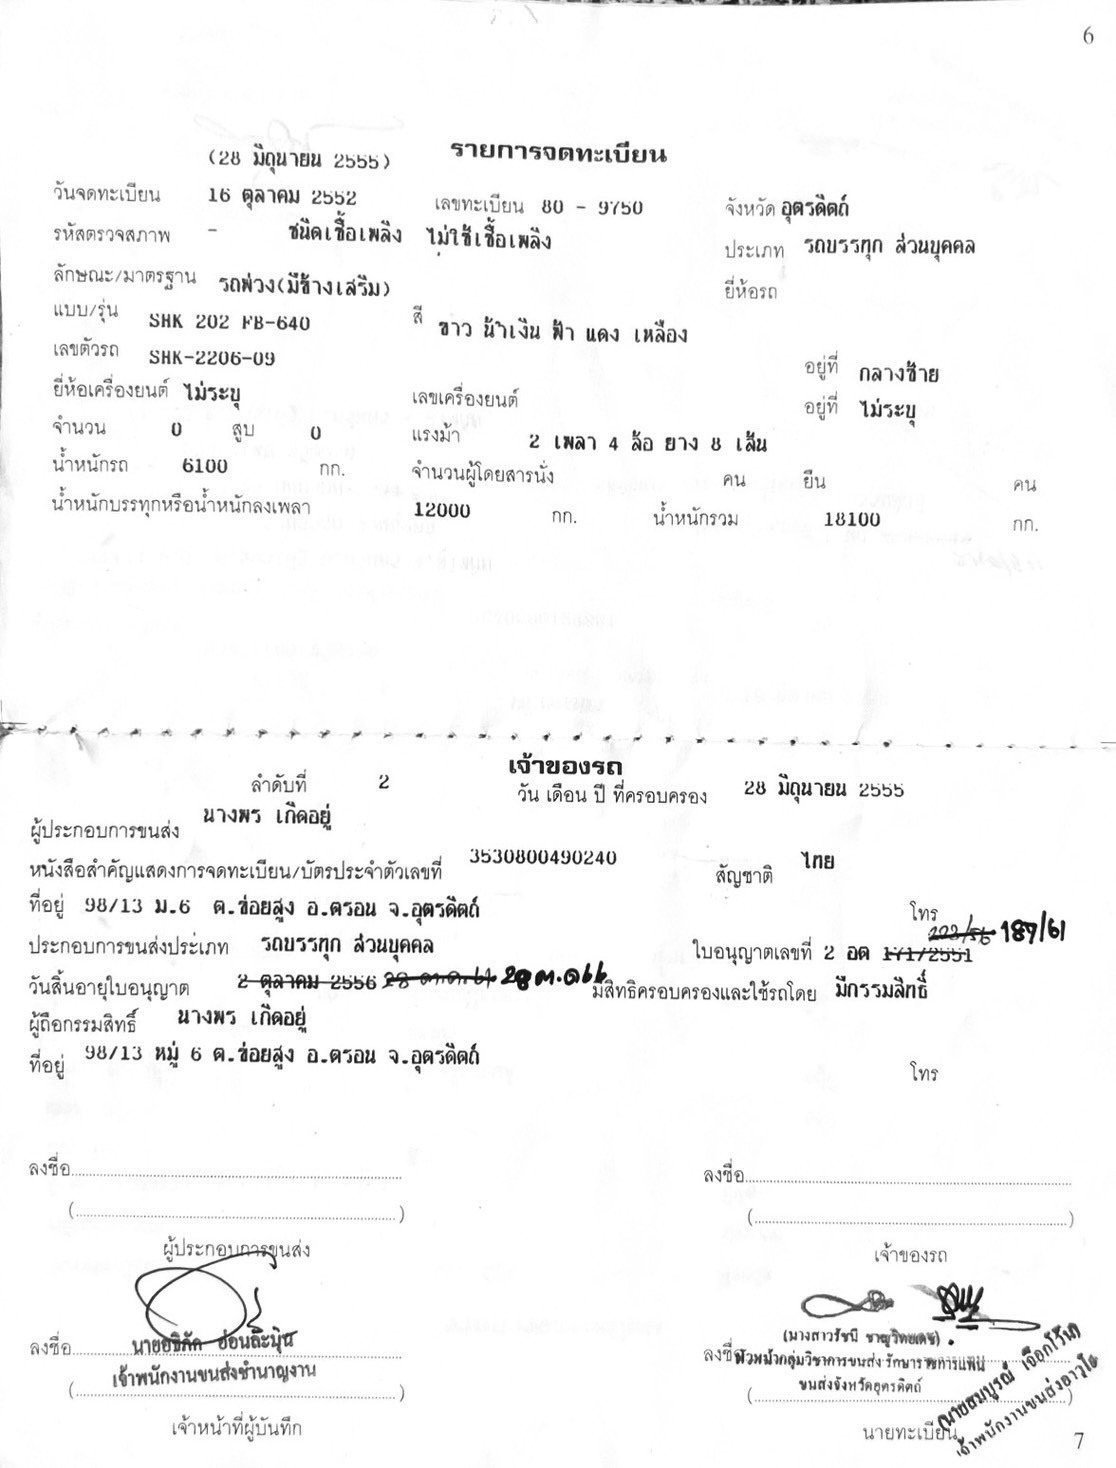 6
รายการจดทะเบียน
(28 มิถุนายน 2555)
วันจดทะเบียน 16 ตุลาคม 2552 เลขทะเบียน 80 - 9750 จังหวัด อุตรดิตถ์
รหัสตรวจสภาพ - ชนิดเชื้อเพลิง ไม่ใช้เชื้อเพลิง ประเภท รถบรรทุก ส่วนบุคคล
ลักษณะ/มาตรฐาน รถพ่วง(มีข้างเสริม) ยี่ห้อรถ
แบบ/รุ่น SHK 202 FB-640 สี ขาว น้ำเงิน ฟ้า แดง เหลือง
เลขตัวรถ SHK-2206-09 อยู่ที่ กลางซ้าย
ยี่ห้อเครื่องยนต์ ไม่ระบุ เลขเครื่องยนต์ อยู่ที่ ไม่ระบุ
จำนวน 0 สูบ 0 แรงม้า 2 เพลา 4 ล้อ ยาง 8 เส้น
น้ำหนักรถ 6100 กก. จำนวนผู้โดยสารนั่ง คน ยืน คน
น้ำหนักบรรทุกหรือน้ำหนักลงเพลา 12000 กก. น้ำหนักรวม 18100 กก.
เจ้าของรถ
ลำดับที่ 2 วัน เดือน ปี ที่ครอบครอง 28 มิถุนายน 2555
ผู้ประกอบการขนส่ง นางพร เกิดอยู่
หนังสือสำคัญแสดงการจดทะเบียน/บัตรประจำตัวเลขที่ 3530800490240 สัญชาติ ไทย
ที่อยู่ 98/13 ม.6 ต.ข่อยสูง อ.ตรอน จ.อุตรดิตถ์ โทร
187/61
ประกอบการขนส่งประเภท รถบรรทุก ส่วนบุคคล ใบอนุญาตเลขที่ 2 อต 171/2551
วันสิ้นอายุใบอนุญาต 2 ตุลาคม 2556 28 ต.ค.61 28 ต.ค.66 มีสิทธิครอบครองและใช้รถโดย มีกรรมสิทธิ์
ผู้ถือกรรมสิทธิ์ นางพร เกิดอยู่
ที่อยู่ 98/13 หมู่ 6 ต.ข่อยสูง อ.ตรอน จ.อุตรดิตถ์ โทร
ลงชื่อ ลงชื่อ
( ) ( )
ผู้ประกอบการขนส่ง เจ้าของรถ
(นางสาวรัชนี ชาญวิทยเดช)
ลงชื่อ ลงชื่อ หัวหน้ากลุ่มวิชาการขนส่ง รักษาราชการแทน
เจ้าพนักงานขนส่งชำนาญงาน
( ) ขนส่งจังหวัดอุตรดิตถ์ ( )
เจ้าหน้าที่ผู้บันทึก นายทะเบียน
7